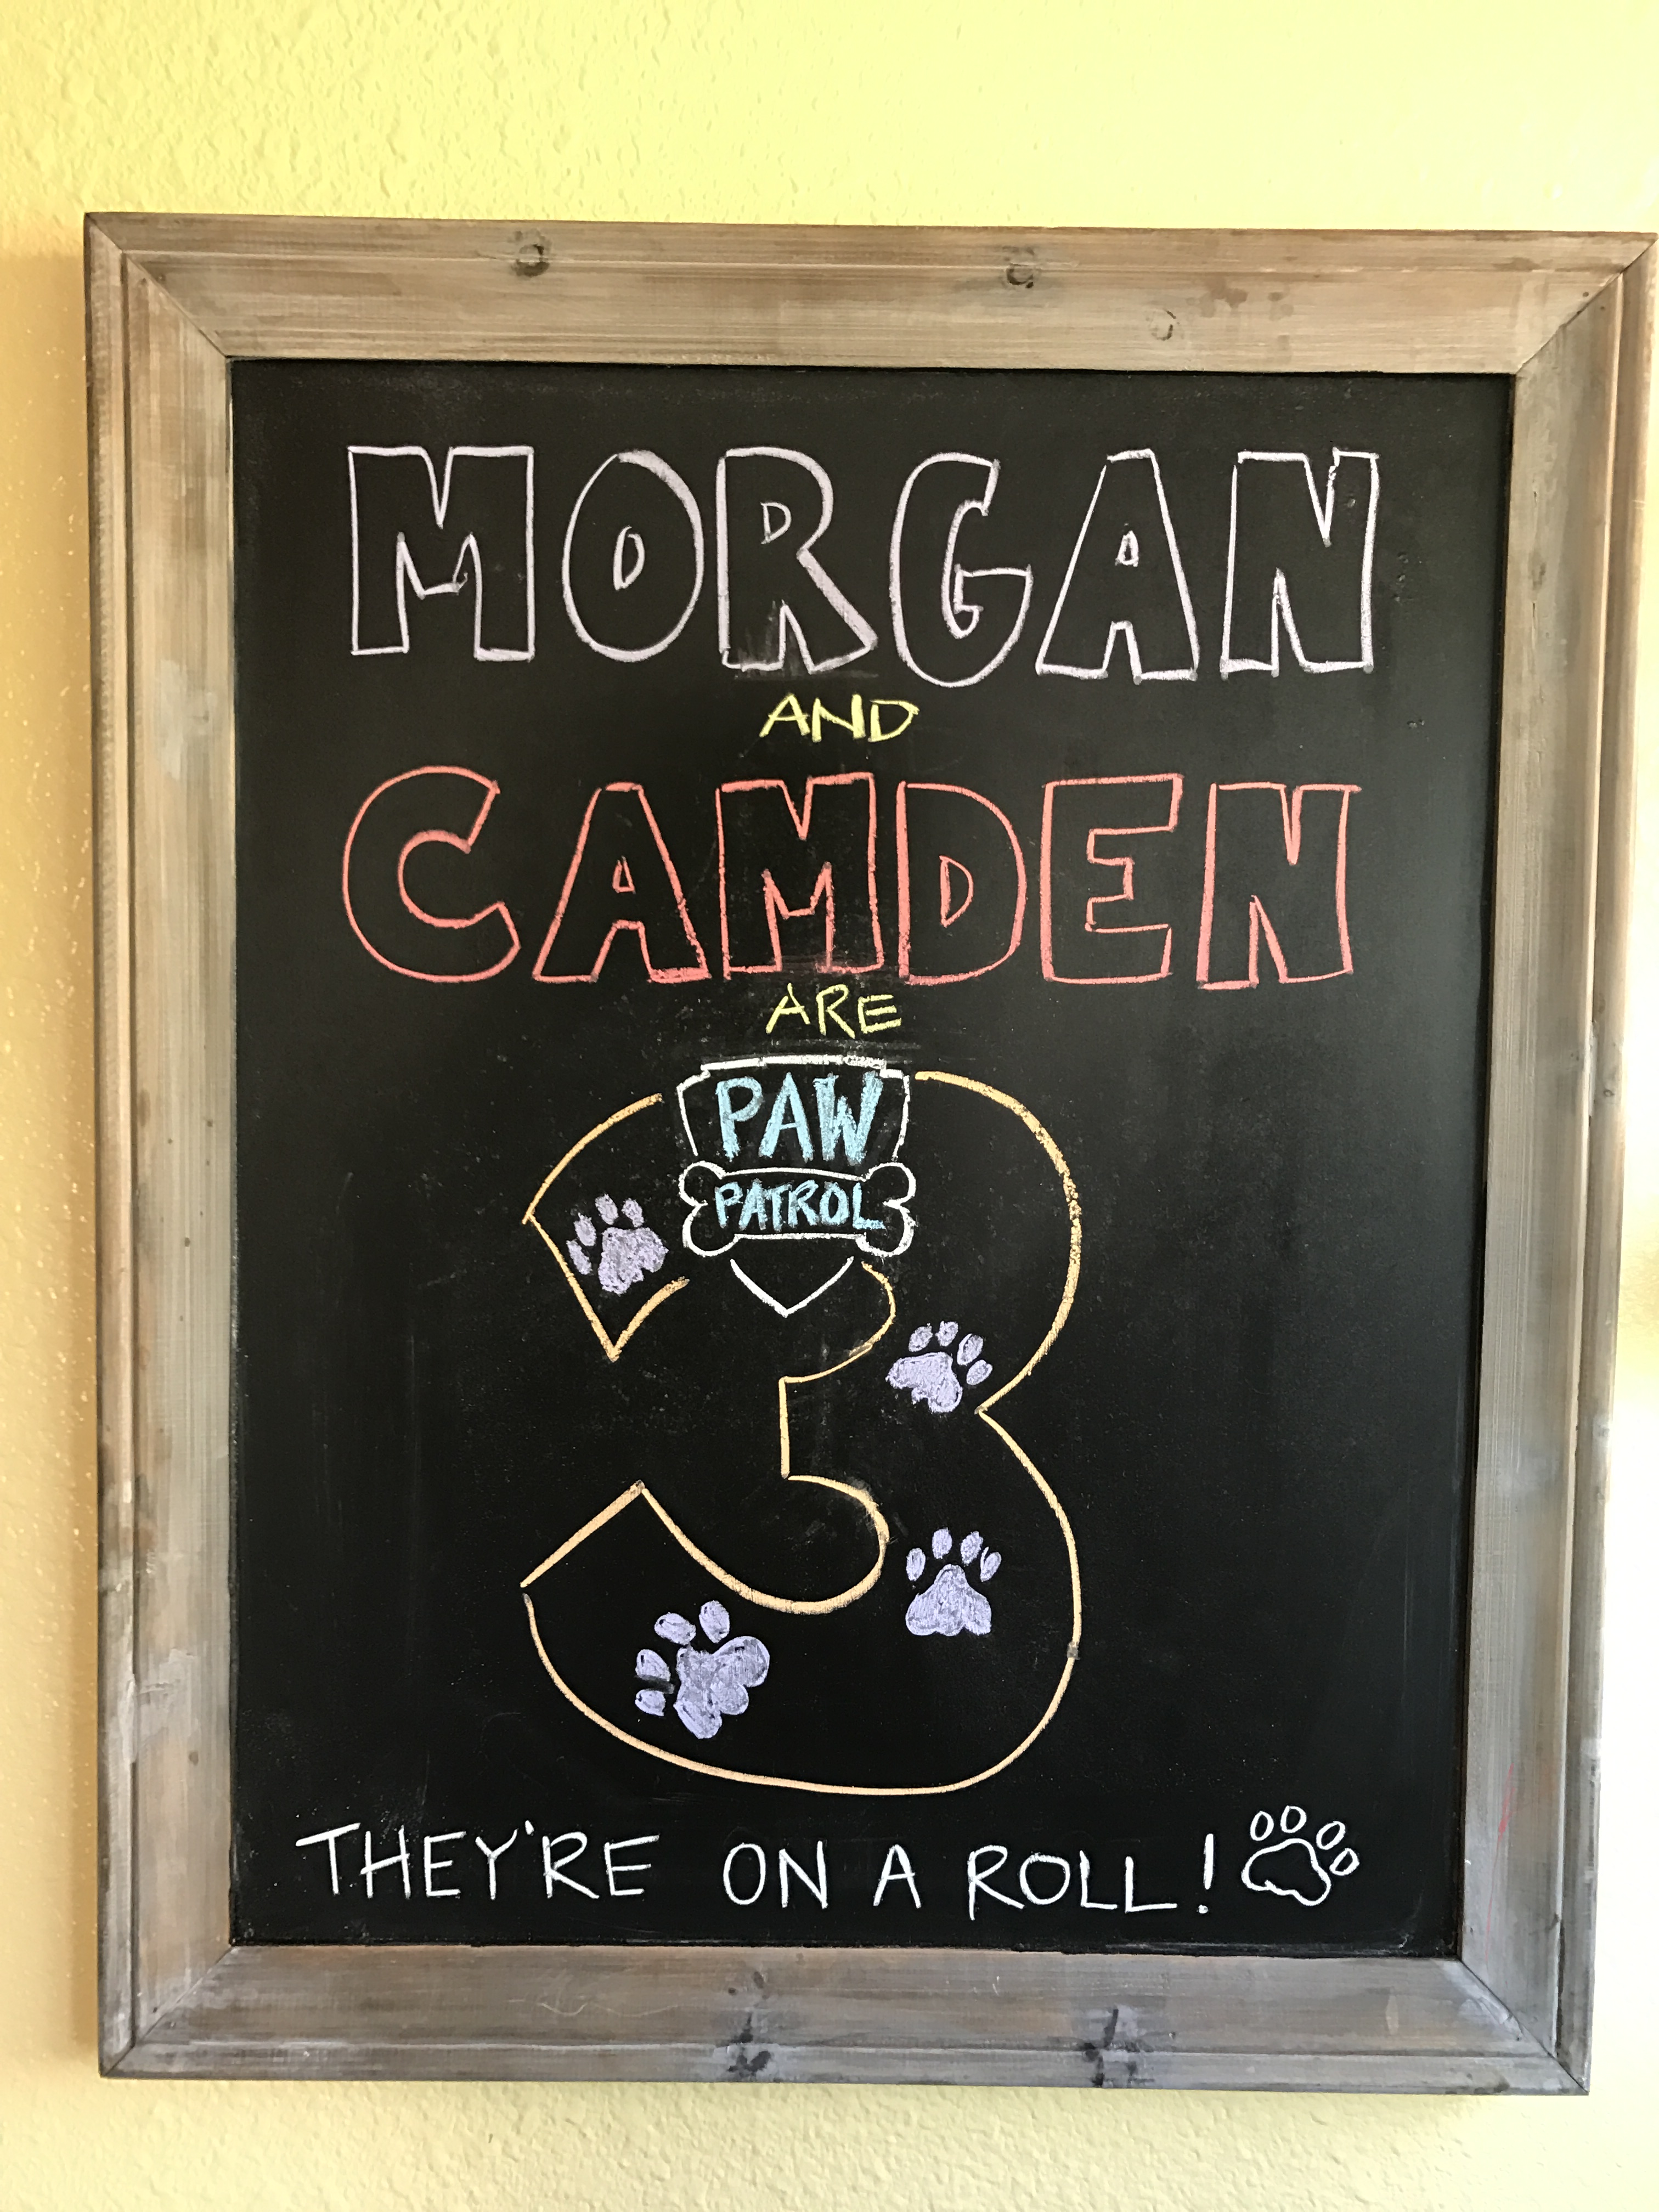 MORGAN
AND
CAMDEN
ARE
PAW
PATROL
3
THEY'RE ON A ROLL!